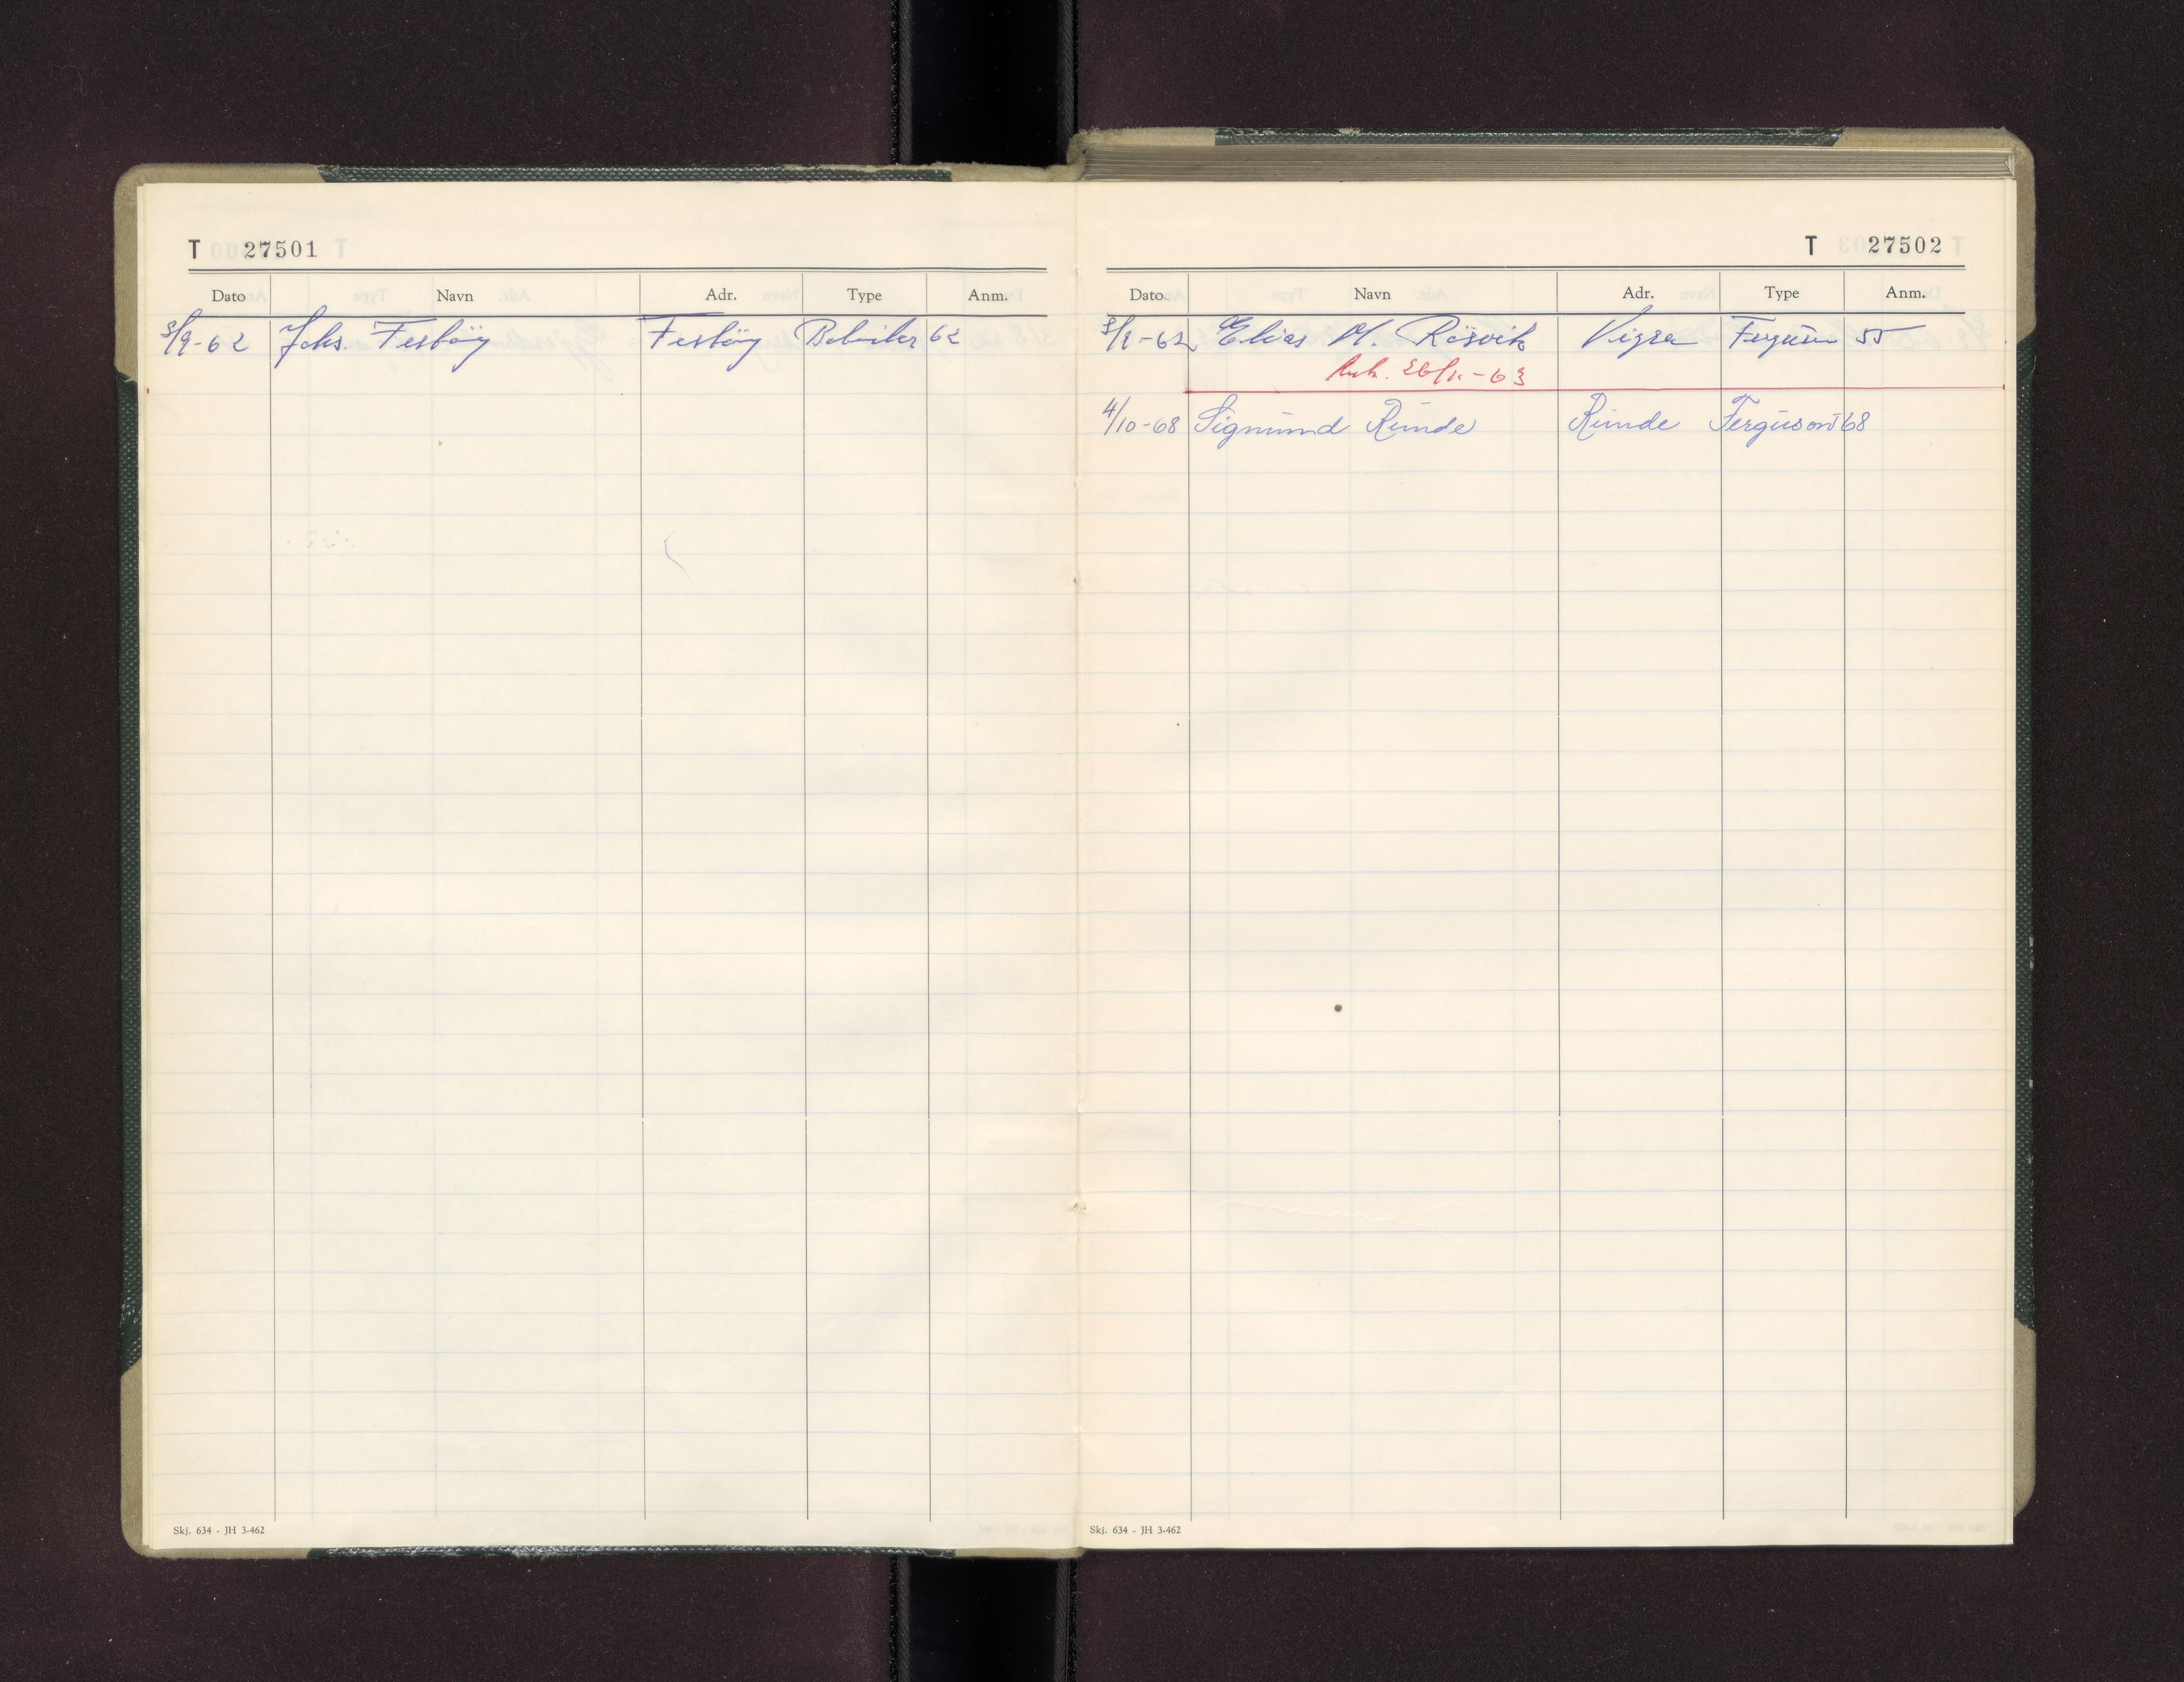 T 27501
Dato Navn Adr. Type Anm.
3/9-62 Johs. Festöy Festöy Bolinder 62
Skj. 634 - JH 3-462
T 27502
Dato Navn Adr. Type Anm.
3/9-62 Elias M. Rösvik Vigra Ferguson 55
26/11-63
4/10-68 Sigmund Runde Runde Ferguson 68
Skj. 634 - JH 3-462